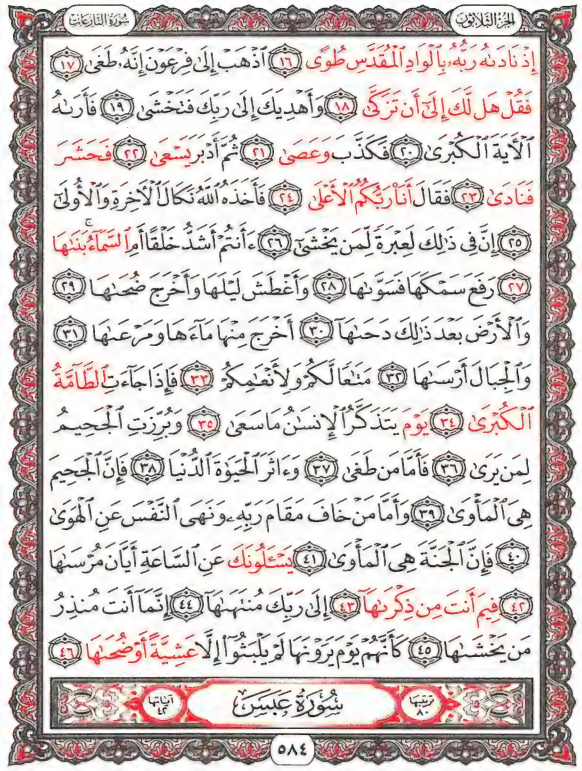 الجزء الثلاثون سورة النازعات
إِذْ نَادَىٰهُ رَبُّهُۥ بِٱلْوَادِ ٱلْمُقَدَّسِ طُوًى ١٦ ٱذْهَبْ إِلَىٰ فِرْعَوْنَ إِنَّهُۥ طَغَىٰ ١٧
فَقُلْ هَل لَّكَ إِلَىٰٓ أَن تَزَكَّىٰ ١٨ وَأَهْدِيَكَ إِلَىٰ رَبِّكَ فَتَخْشَىٰ ١٩ فَأَرَىٰهُ
ٱلْـَٔايَةَ ٱلْكُبْرَىٰ ٢٠ فَكَذَّبَ وَعَصَىٰ ٢١ ثُمَّ أَدْبَرَ يَسْعَىٰ ٢٢ فَحَشَرَ
فَنَادَىٰ ٢٣ فَقَالَ أَنَا۠ رَبُّكُمُ ٱلْأَعْلَىٰ ٢٤ فَأَخَذَهُ ٱللَّهُ نَكَالَ ٱلْـَٔاخِرَةِ وَٱلْأُولَىٰٓ
٢٥ إِنَّ فِى ذَٰلِكَ لَعِبْرَةً لِّمَن يَخْشَىٰٓ ٢٦ ءَأَنتُمْ أَشَدُّ خَلْقًا أَمِ ٱلسَّمَآءُ ۚ بَنَىٰهَا
٢٧ رَفَعَ سَمْكَهَا فَسَوَّىٰهَا ٢٨ وَأَغْطَشَ لَيْلَهَا وَأَخْرَجَ ضُحَىٰهَا ٢٩
وَٱلْأَرْضَ بَعْدَ ذَٰلِكَ دَحَىٰهَآ ٣٠ أَخْرَجَ مِنْهَا مَآءَهَا وَمَرْعَىٰهَا ٣١
وَٱلْجِبَالَ أَرْسَىٰهَا ٣٢ مَتَٰعًا لَّكُمْ وَلِأَنْعَٰمِكُمْ ٣٣ فَإِذَا جَآءَتِ ٱلطَّآمَّةُ
ٱلْكُبْرَىٰ ٣٤ يَوْمَ يَتَذَكَّرُ ٱلْإِنسَٰنُ مَا سَعَىٰ ٣٥ وَبُرِّزَتِ ٱلْجَحِيمُ
لِمَن يَرَىٰ ٣٦ فَأَمَّا مَن طَغَىٰ ٣٧ وَءَاثَرَ ٱلْحَيَوٰةَ ٱلدُّنْيَا ٣٨ فَإِنَّ ٱلْجَحِيمَ
هِىَ ٱلْمَأْوَىٰ ٣٩ وَأَمَّا مَنْ خَافَ مَقَامَ رَبِّهِۦ وَنَهَى ٱلنَّفْسَ عَنِ ٱلْهَوَىٰ
٤٠ فَإِنَّ ٱلْجَنَّةَ هِىَ ٱلْمَأْوَىٰ ٤١ يَسْـَٔلُونَكَ عَنِ ٱلسَّاعَةِ أَيَّانَ مُرْسَىٰهَا
٤٢ فِيمَ أَنتَ مِن ذِكْرَىٰهَآ ٤٣ إِلَىٰ رَبِّكَ مُنتَهَىٰهَآ ٤٤ إِنَّمَآ أَنتَ مُنذِرُ
مَن يَخْشَىٰهَا ٤٥ كَأَنَّهُمْ يَوْمَ يَرَوْنَهَا لَمْ يَلْبَثُوٓا۟ إِلَّا عَشِيَّةً أَوْ ضُحَىٰهَا ٤٦
ترتيبها ٨٠ سُورَةُ عَبَسَ آياتها ٤٢
٥٨٤